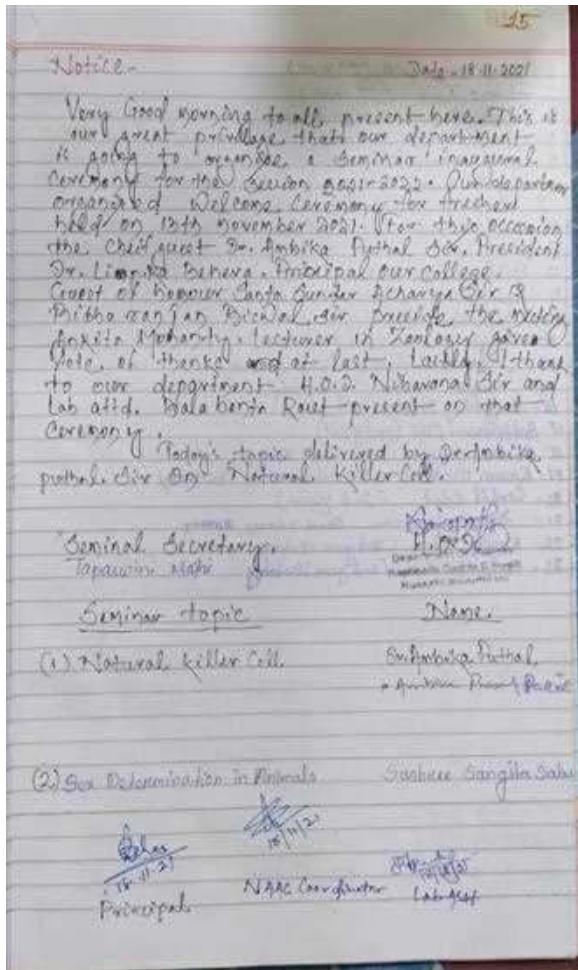 25
Notice- Date - 18-11-2021
Very Good morning to all, present here. This is
our great privillage that our department
is going to organise a Seminar inaugural
Ceremony for the Session 2021-2022. Our department
organised Welcome Ceremony for freshers
held on 13th November 2021. For this occassion
the Cheif guest Dr. Ambika Puthal Sir, President
Dr. Behera. Principal our College.
Guest of honour Santa Sundar Acharya Sir &
Bibhu ranjan Biswal Sir the meeting
Ankita Mohanty, Lecturer in Zoology given
Vote of thanks and at last, Lastly, I thank
to our department H.O.D. Nibarana Sir and
Lab attd. Balabanta Rout present on that
Ceremony.
Today's topic delivered by Dr Ambika
puthal Sir On Natural Killer Cell.
Seminal Secretary. H.O.D
Tapaswini
Seminar topic Name.
(1) Natural Killer Cell. Dr. Ambika Puthal
(2) Sex Determination in Animals Sangita Sahu
18/11/21
18-11-21
Principal NAAC Coordinator Lab Asst